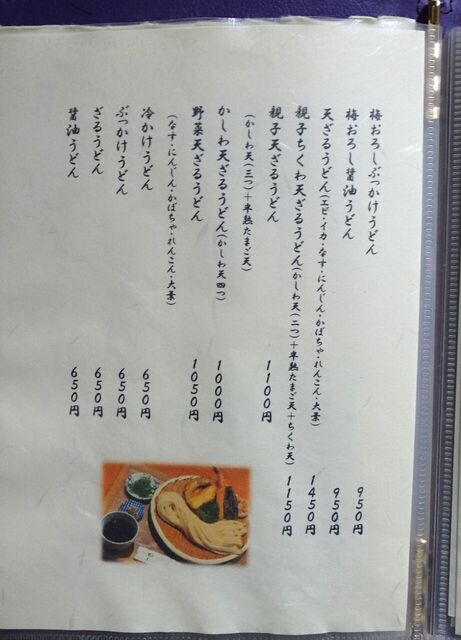 梅おろしぶっかけうどん 950円
梅おろし醤油うどん 950円
天ざるうどん(エビ・イカ・なす・にんじん・かぼちゃ・れんこん・大葉) 1450円
親子ちくわ天ざるうどん(かしわ天(二つ)+半熟たまご天+ちくわ天) 1150円
親子天ざるうどん 1100円
(かしわ天(三つ)+半熟たまご天)
かしわ天ざるうどん(かしわ天四つ) 1000円
野菜天ざるうどん 1050円
(なす・にんじん・かぼちゃ・れんこん・大葉)
冷かけうどん 650円
ぶっかけうどん 650円
ざるうどん 650円
醤油うどん 650円